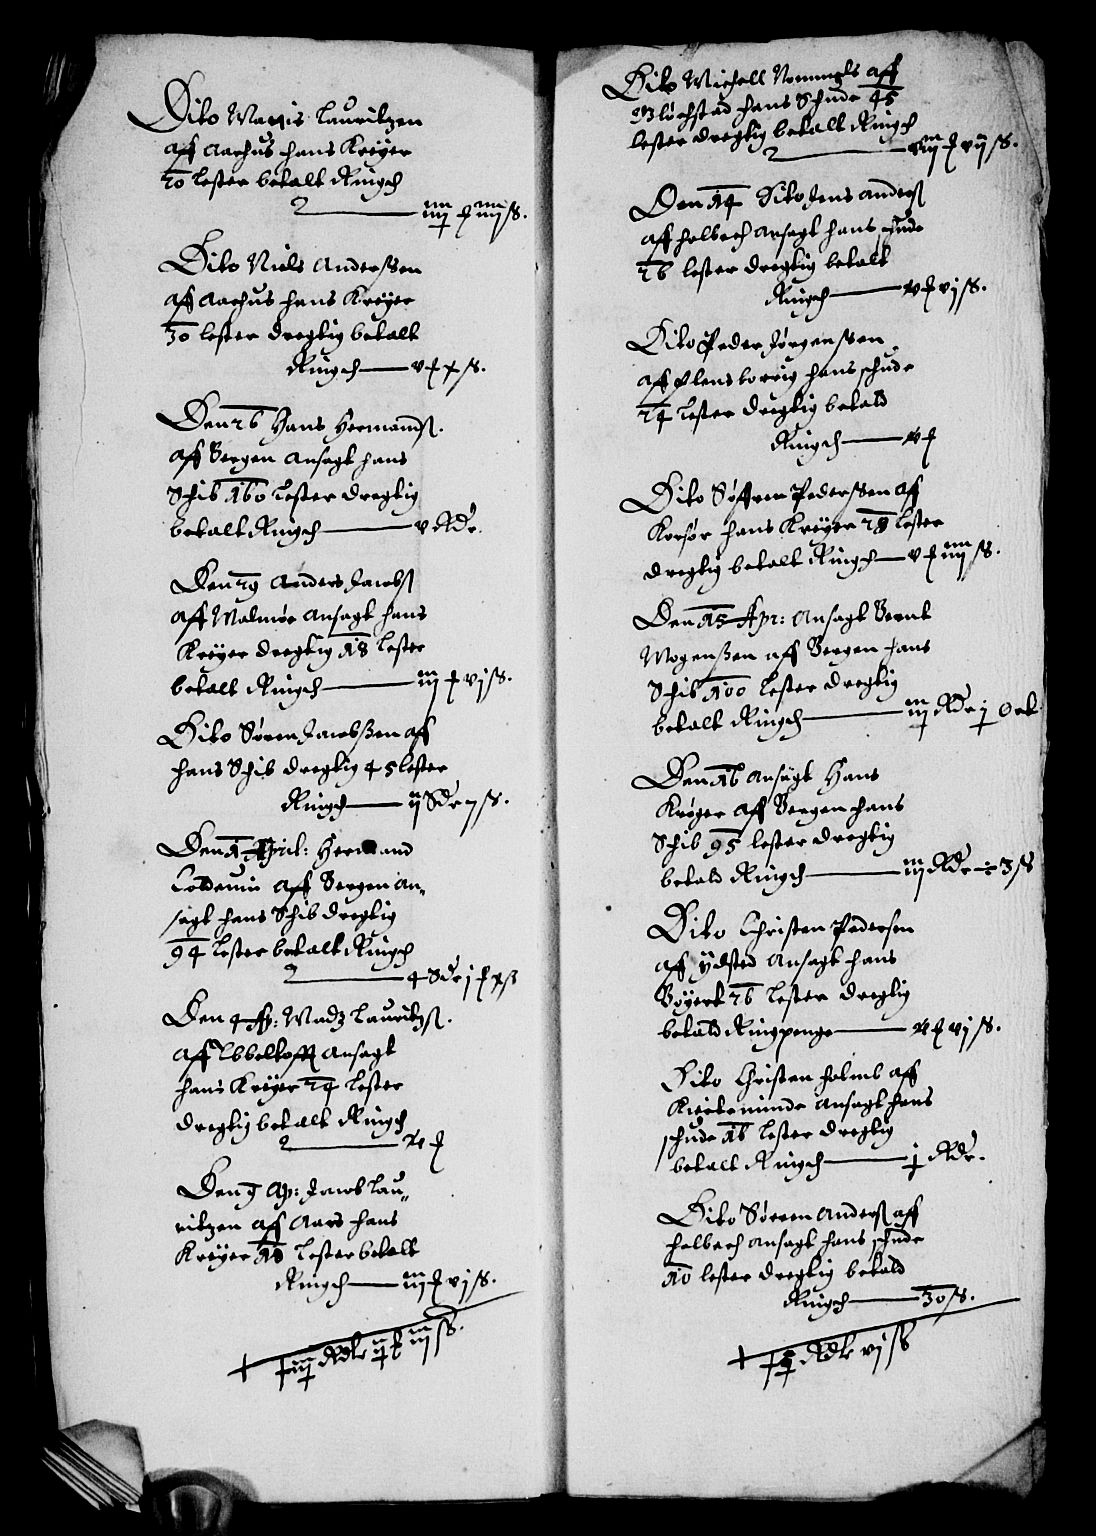 Dito Mattis Lauritzen
aff Aarhus hans Kreyer
20 lester betalt Ringsch
2 —— iiij ƒ iiij ß.
Dito Niels Anderssen
aff Aarhus hans Kreyer
30 lester dregtig betalt
Ringsch —— v ƒ x ß.
Den 26 Hans Hermands.
aff Bergen Ansagt hans
Schib 160 Lester dregtig
betalt Ringsch —— v Rdr.
Den 29 Anders Jacobs
aff Malmør Ansagt hans
Kreyer dregtig 18 Lester
betalt Ringsch —— iij ƒ vj ß.
Dito Søren Jacobssen aff
hans Schib dregtig 45 lester
Ringsch —— ij Sdr 7 ß.
Den 1 April: Hermand
aff Bergen An-
sagt hans Schib dregtig
94 lester betalt Ringsch
2 —— 4 Sdr j ƒ x ß
Den 4 Ap: Madz Lauritzs.
aff Ebbeltofft Ansagt
hans Kreyer 24 Lester
dregtig betalt Ringsch
2 —— ƒ
Den 9 Ap: Jacob Lau-
ritzen aff Aars hans
Kreyer 18 Lester betalt
Ringsch —— iij ƒ vj ß.
Rdlr iij ß.
Dito Michell
hans Schude 45
lester dregtig betalt Ringsch
2 —— ƒ vij ß.
Den 14 Dito Jens Anders
aff holbech Ansagt hans schude
26 lester dregtig betalt
Ringsch —— ƒ vj ß.
Dito Peder Jørgenssen
aff Flensborrig hans schude
24 Lester dregtig betald
Ringsch —— ƒ
Dito Søffren Pederssen aff
Korsør hans Kreyer 28 Lester
dregtig betalt Ringsch — v ƒ iiij ß.
Den 15 Apr: Ansagt Bernt
Mogenssen aff Bergen hans
Schib 100 lester dregtig
betalt Ringsch —— iij Rdr j Ort.
Den 16 Ansagt Hans
Krøger aff Bergen hans
Schib 95 lester dregtig
betald Ringsch —— iij Rdr ÷ 3 ß
Dito Christen Pedersen
aff Ydsted Ansagt hans
Bøyert 26 Lester dregtig
betald Ringpenge —— ƒ vj ß.
Dito Christen Holmb aff
Kierteminde Ansagt hans
schude 16 Lester dregtig
betalt Ringsch —— j Rdr.
Dito Sørren Anders aff
holbech Ansagt hans schude
10 lester dregtig betald
Ringsch —— 30 ß.
Rdlr vj ß